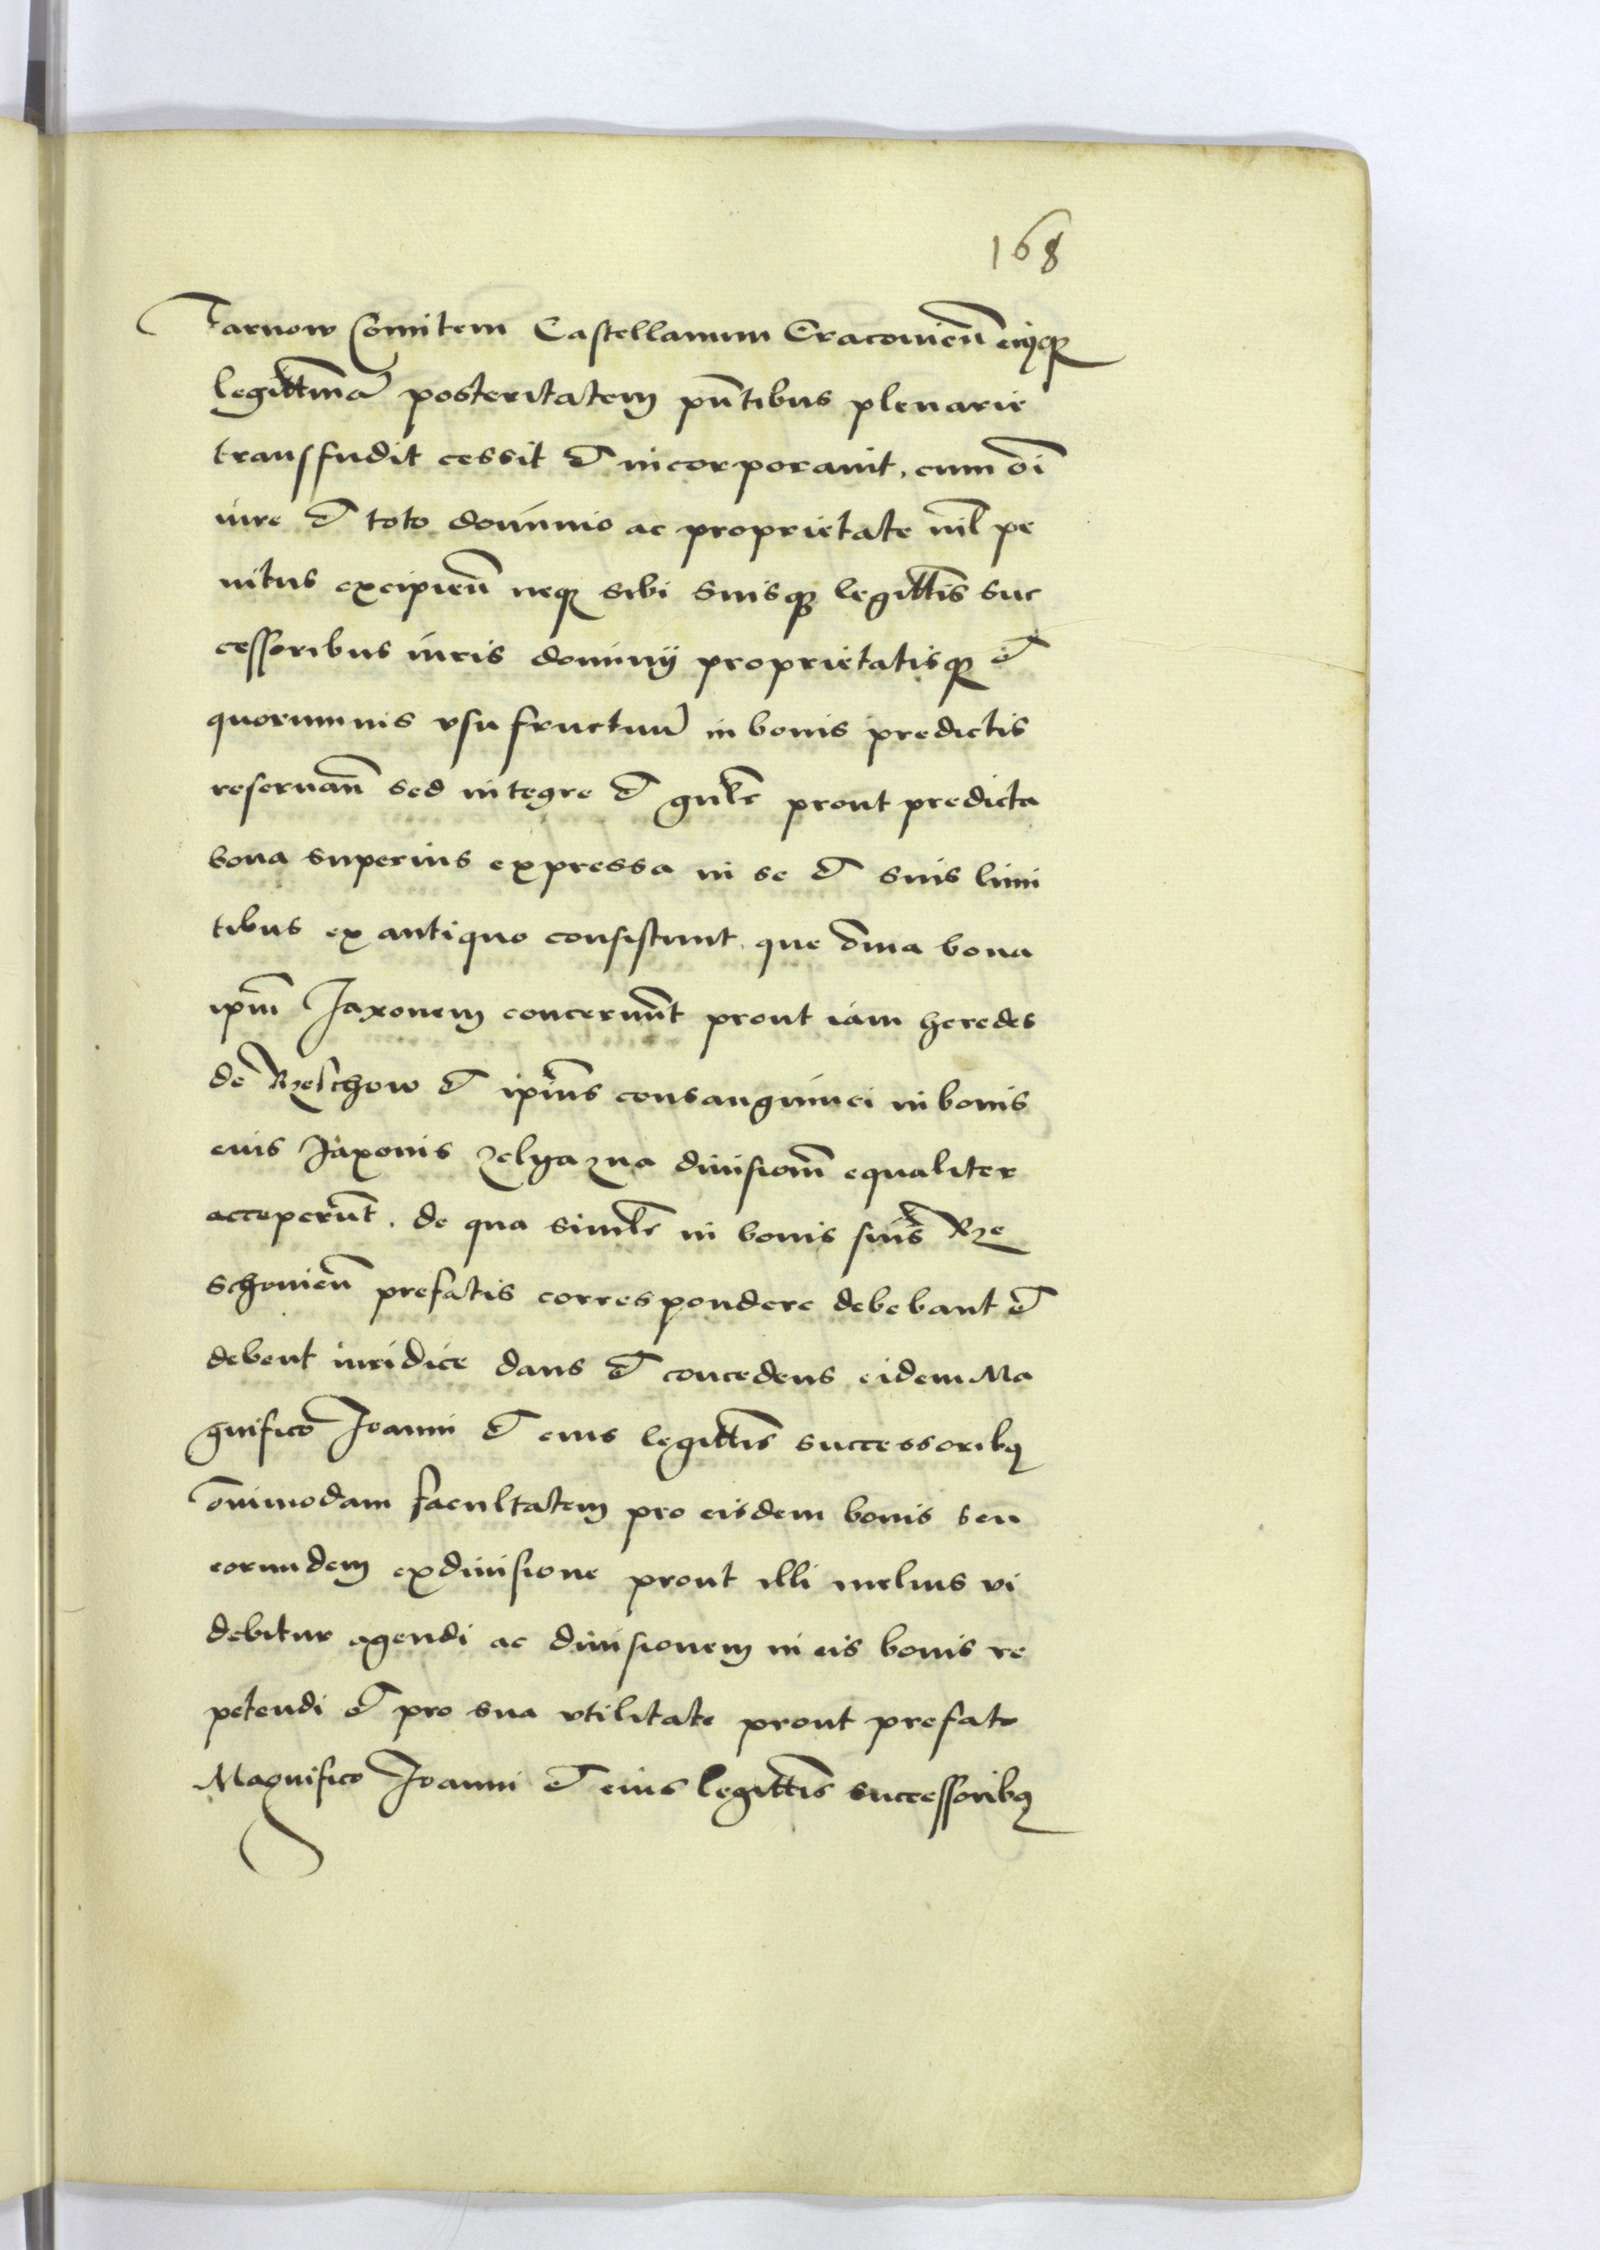 168
Tarnow Comitem Castellanum Cracovien̄ eiusq3
legittima᷉ posteritatem pn̄tibus plenarie
transfudit cessit et incorporavit, cum om̄i
iure et toto dominio ac proprietate nīl pe
nitus excipien̄ neq3 sibi suisq3 legittīs suc
cessoribus iuris dominij proprietatisq3 et
quorumvis vsufructuu᷉ in bonis predictis
reservan̄ sed integre et gn̄lr prout predicta
bona superius expressa in se et suis limi
tibus ex antiquo consistunt. que om̄ia bona
ipm̄ Jaxonem concernūt prout iam heredes
de Rzeschow et ipius̄ consanguinei in bonis
eius Jaxonis zelyazna divisionē equaliter
acceperūt. de qua simlr̄ in bonis suis Rze
schovien̄ prefatis correspondere debebant et
debent iuridice dans et concedens eidem Ma
gnifico Joanni et eius legittīs successorib9
om̄imodam facultatem pro eisdem bonis seu
eorundem exdivisione prout illi melius vi
debitur agendi ac divisionem in eis bonis re
petendi et pro sua vtilitate prout prefato
Magnifico Joanni et eius legittīs successorib9